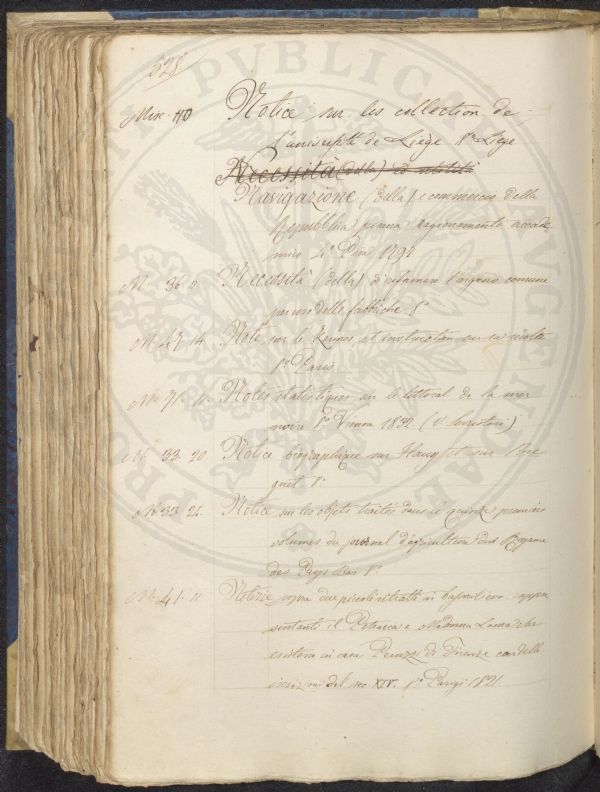 528
Misc. 110 Notice sur les collection de
l'université de Liège 8º Liege
Necessità (della)
Navigazione (della) e commercio della
Repubblica pisana Ragionamento accade
mico 4º Pisa 1797
M. 36. 9. Necessità (della) d'infornare l'argento comune
per uso delle fabbriche 8º
M. 47. 14. Note sur le Kermes, et instruction sur sa récolte
8º Paris
M. 71. 11. Notes statistiques sur le littoral de la mer
noire 8º Vienne 1832 (V. Servitori)
M. 33. 20 Notice biographique sur Haüy et sur Bre
guet 8º
M. 33 24. Notice sur les objets traités dans le quinze premiers
volumes du journal d'agriculture des Royaume
des Pays Bas 8º
M. 41. 11 Notizie sopra due piccoli ritratti in bassorilievo rappre
sentanti il Petrarca e Madonna Laura che
esistono in casa Peruzzi di Firenze con delle
iscrizioni del sec. XIV. 8º Parigi 1821